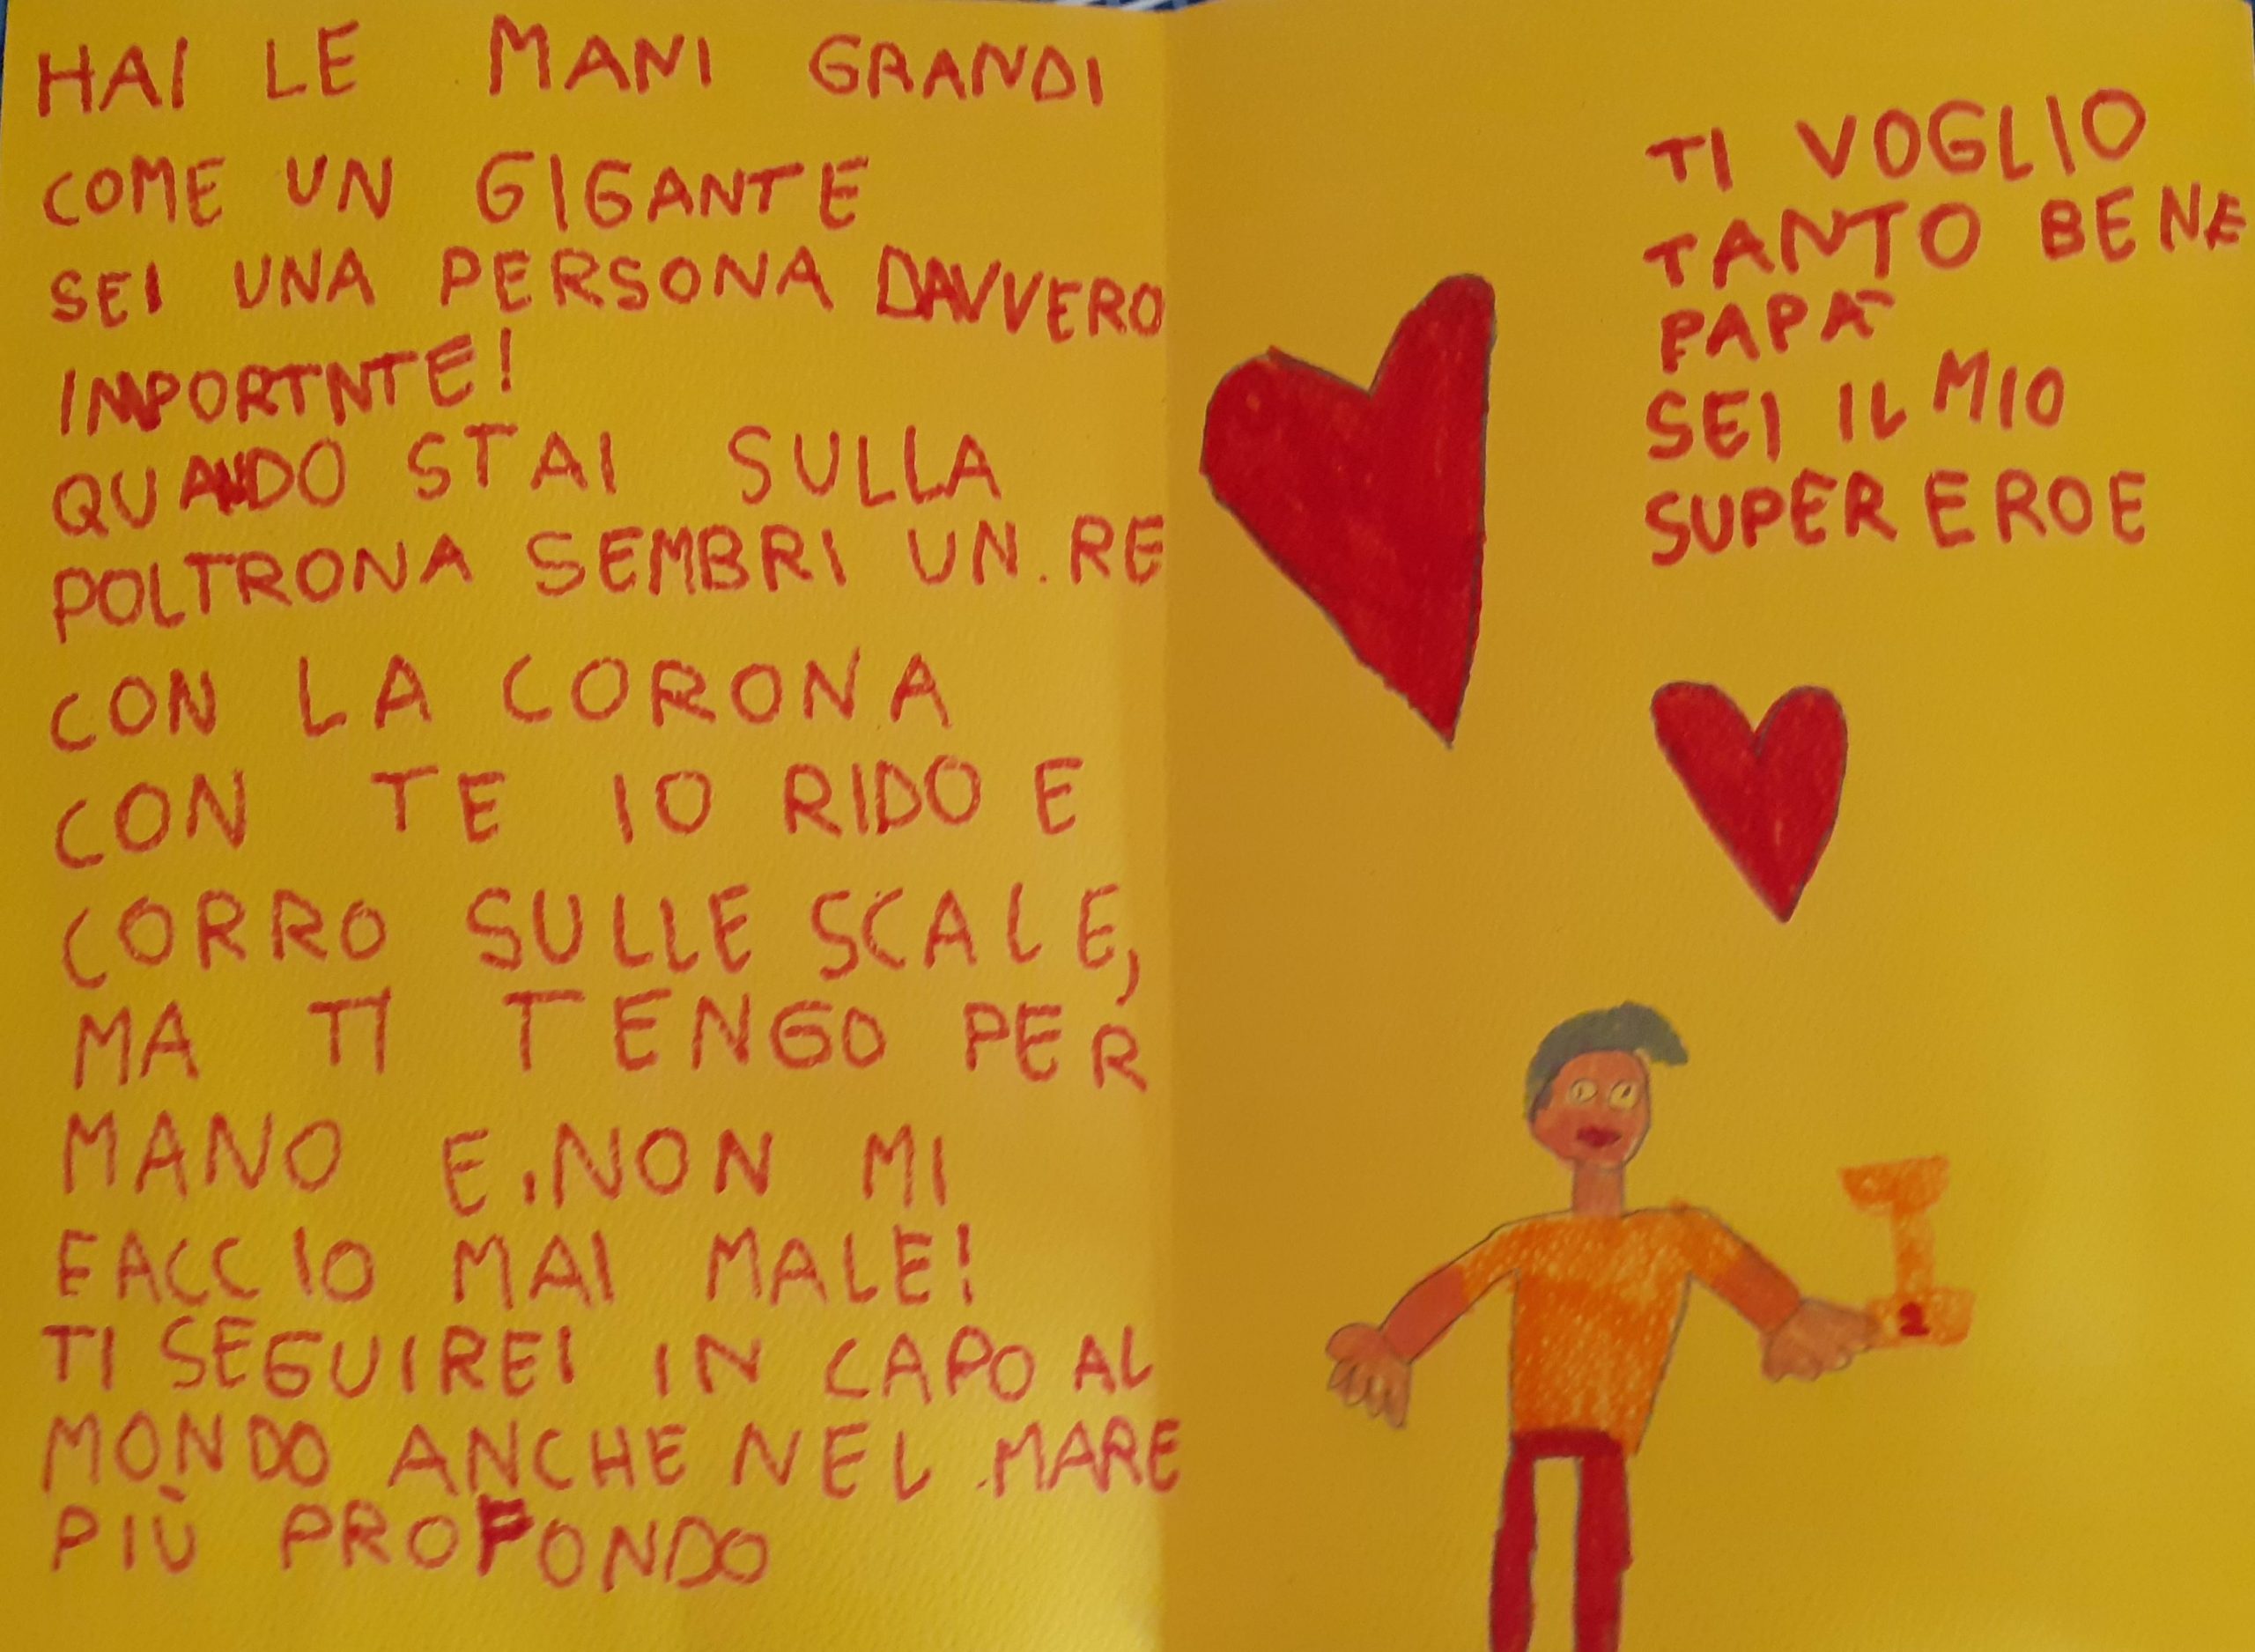 HAI LE MANI GRANDI
COME UN GIGANTE
SEI UNA PERSONA DAVVERO
IMPORTNTE!
QUANDO STAI SULLA
POLTRONA SEMBRI UN. RE
CON LA CORONA
CON TE IO RIDO E
CORRO SULLE SCALE,
MA TI TENGO PER
MANO E. NON MI
FACCIO MAI MALE!
TI SEGUIREI IN CAPO AL
MONDO ANCHE NEL MARE
PIÙ PROFONDO
TI VOGLIO
TANTO BENE
PAPÀ
SEI IL MIO
SUPER EROE